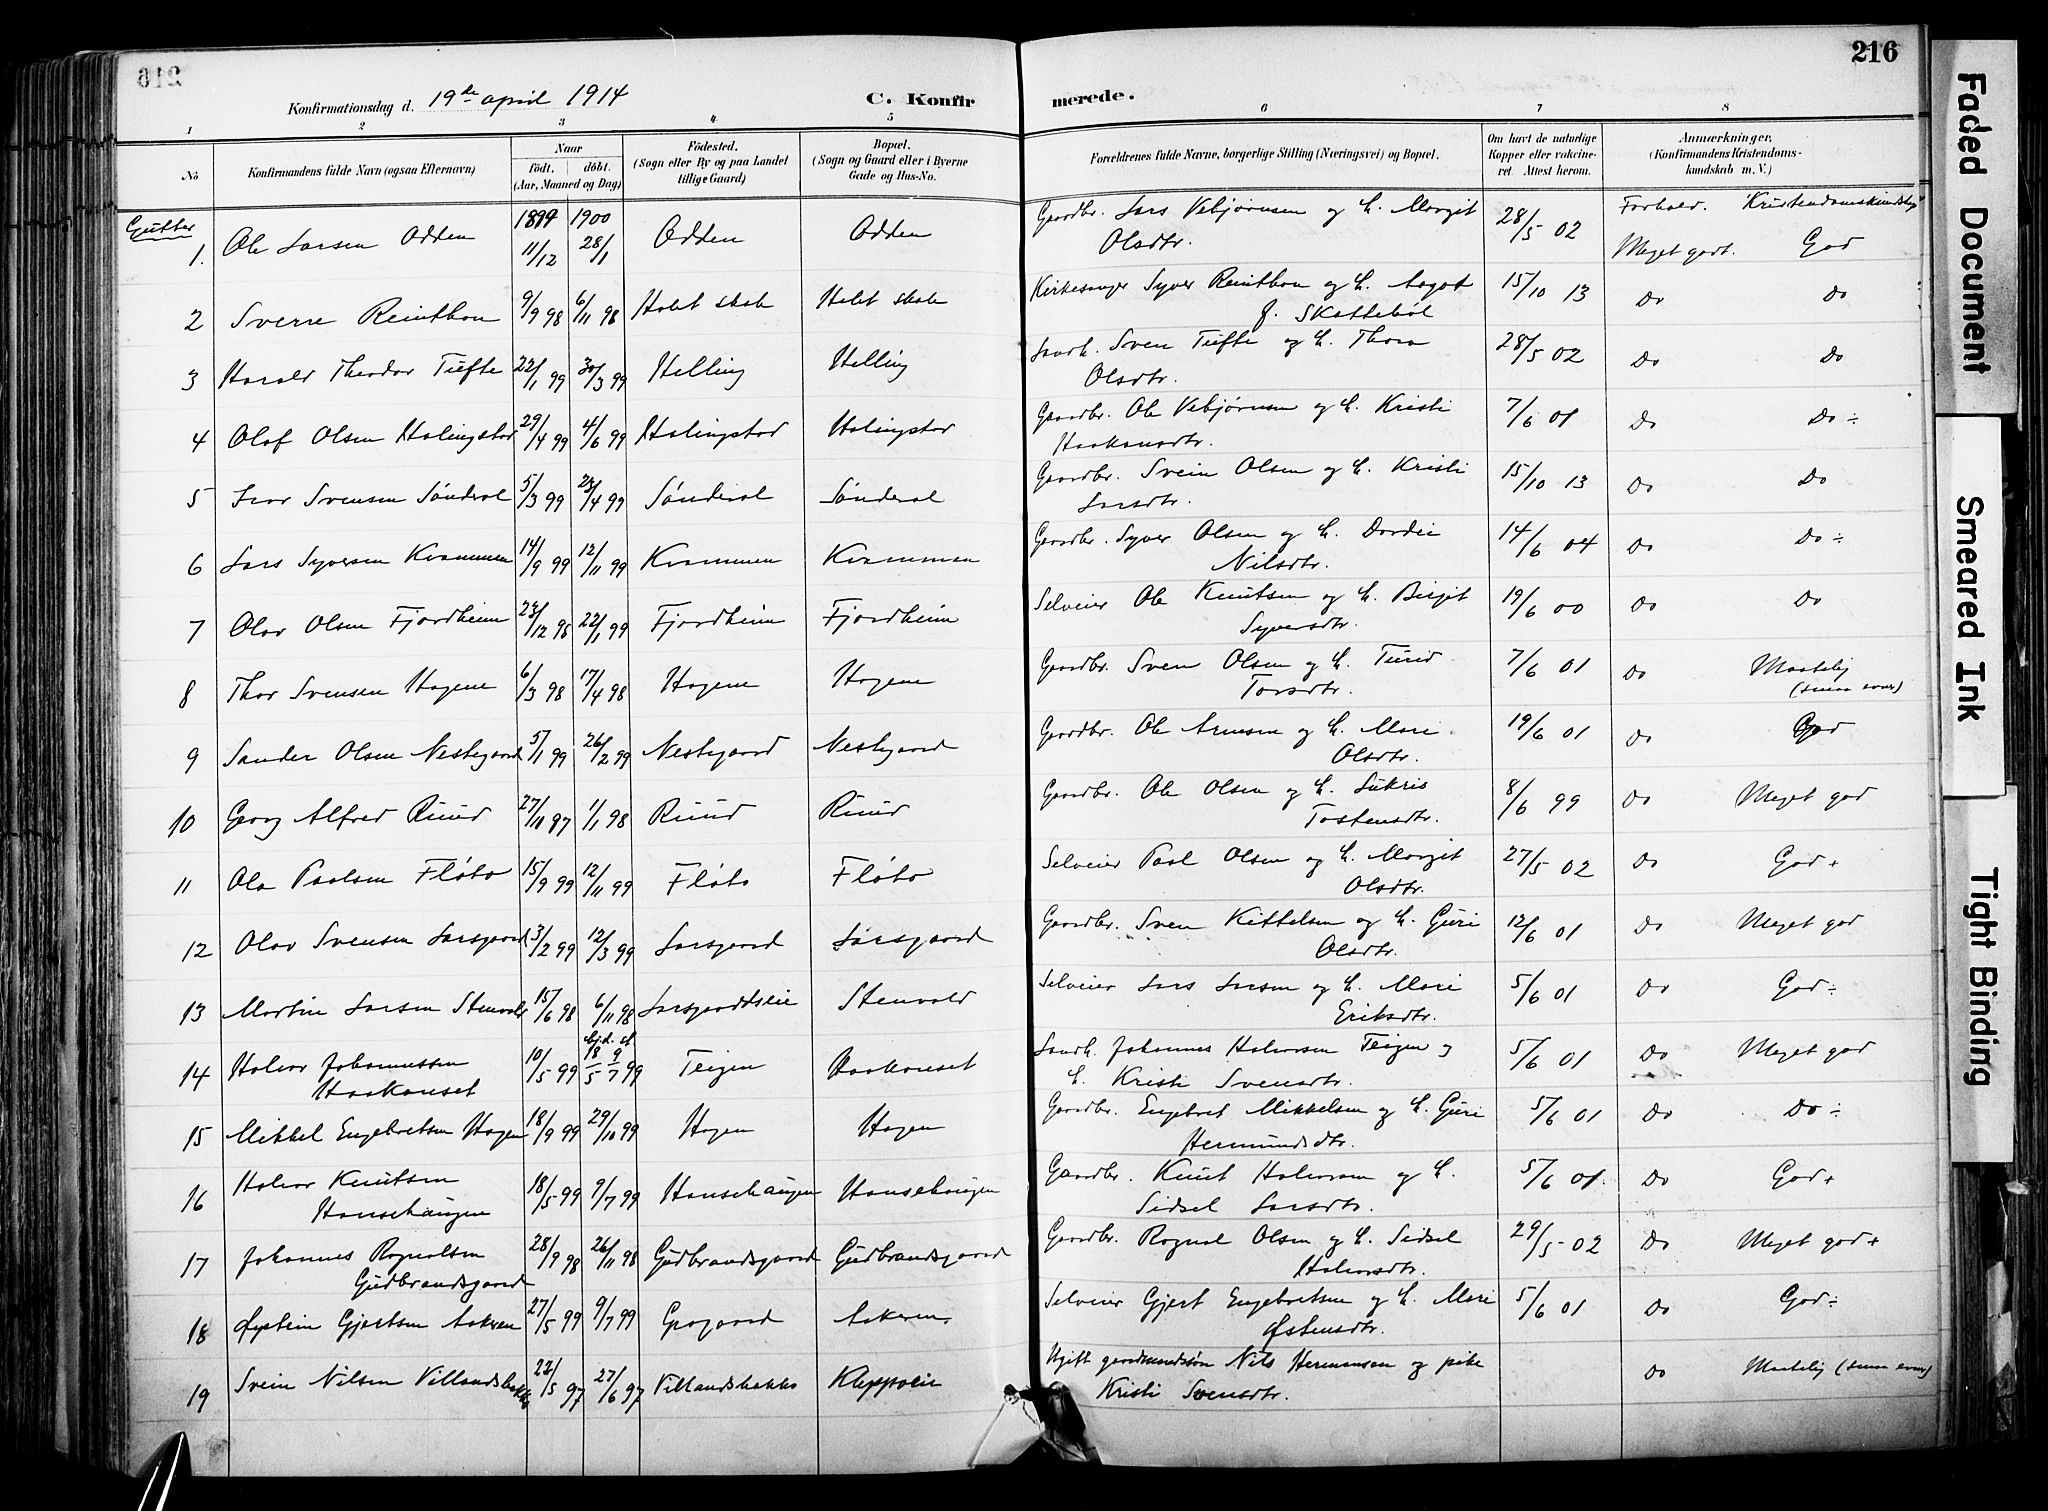 216
Konfirmationsdag d. 19de april 1914
C. Konfir
merede.
1 2 3 4 5 6 7 8
No
Konfirmandens fulde Navn (ogsaa Efternavn)
Naar
födt. döbt.
(Aar, Maaned og Dag)
Födested.
(Sogn eller By og paa Landet
tillige Gaard)
Bopæl.
(Sogn og Gaard eller i Byerne
Gade og Hus-No.
Forældrenes fulde Navne, borgerlige Stilling (Næringsvei) og Bopæl.
Om havt de naturlige
Kopper eller vakcine-
ret. Attest herom.
Anmærkninger,
(Konfirmandens Kristendoms-
kundskab m. V.)
Gutter
1899 1900
Forhold. Kristendomskundskap
1. Ole Larsen Odden 11/12 28/1 Odden Odden Gaardbr. Lars Vebjørnsen og h. Margit 28/5 02 Meget godt. God
Olsdtr.
2 Sverre Reinton 9/9 98 6/11 98 Holet skole Holet skole Kirkesanger Syver Reinton og h. Aagot 15/10 13 Do Do
f. Skattebøl
3 Harald Theodor Tufte 22/1 99 30/3 99 Helling Helling Landh. Sven Tufte og h. Thora 28/5 02 Do Do
Olsdtr.
4 Olaf Olsen Halingstad 29/4 99 4/6 99 Halingstad Halingstad Gaardbr. Ole Vebjørnsen og h. Kristi 7/6 01 Do Do ÷
Haakonsdtr.
5 Ivar Svensen Sønderal 5/3 99 23/4 99 Sønderal Sønderal Gaardbr. Svein Olsen og h. Kristi 15/10 13 Do Do
Larsdtr.
6 Lars Syversen Kvammen 14/9 99 12/11 99 Kvammen Kvammen Gaardbr. Syver Olsen og h. Dordei 14/6 04 Do Do ÷
Nilsdtr.
7 Olav Olsen Fjordheim 23/12 98 22/1 99 Fjordheim Fjordheim Selveier Ole Knutsen og h. Birgit 19/6 00 Do Do
Syversdtr.
8 Thor Svensen Hagene 6/3 98 17/4 98 Hagene Hagene Gaardbr. Sven Olsen og h. Turid 7/6 01 Do Maatelig
Torsdtr. (smaa evner)
9 Sander Olsen Nestegaard 5/1 99 26/2 99 Nestegaard Nestegaard Gaardbr. Ole Arnesen og h. Mari 19/6 01 Do God
Olsdtr.
10 Georg Alfred Ruud 27/11 97 1/1 98 Ruud Ruud Gaardbr. Ole Olsen og h. Sukris 8/6 99 Do Meget god
Tostensdtr.
11 Ola Paalsen Fløto 15/9 99 12/11 99 Fløto Fløto Selveier Paal Olsen og h. Margit 27/5 02 Do God +
Olsdtr.
12 Olav Svensen Larsgaard 3/2 99 12/3 99 Larsgaard Larsgaard Gaardbr. Sven Kittelsen og h. Guri 12/6 01 Do Meget god
Olsdtr.
13 Martin Larsen Stenvold 15/6 98 6/11 98 Larsgaardseie Stenvold Selveier Lars Larsen og h. Mari 5/6 01 Do God ÷
Eriksdtr.
14 Halvor Johannessen 10/5 99 hjd. 18/5 st. 9/7 99 Teigen Haakonset Landh. Johannes Halvorsen Teigen og 5/6 01 Do Meget god
Haakonset
h. Kristi Svensdtr.
15 Mikkel Engebretsen Hagen 18/9 99 29/10 99 Hagen Hagen Gaardbr. Engebret Mikkelsen og h. Guri 5/6 01 Do Do ÷
Hermundsdtr.
16 Halvor Knutsen 18/5 99 9/7 99 Hansehaugen Hansehaugen Gaardbr. Knut Halvorsen og h. 5/6 01. Do God +
Hansehaugen
Sidsel Larsdtr.
17 Johannes Ragnalsen 28/9 98 26/11 98 Gudbrandsgaard Gudbrandsgaard Gaardbr. Ragnal Olsen og h. Sidsel 29/5 02 Do Meget god +
Gudbrandsgaard
Halvorsdtr.
18 Øystein Gjertsen Aakeren 27/5 99 9/7 99 Graagaard Aakeren Selveier Gjert Engebretsen og h. Mari 5/6 01 Do God ÷
Østensdtr.
19 Svein Nilsen Villandsbakke 22/5 97 27/6 97 Villandsbakko Kleppolie Ugift gaardmandssøn Nils Hermansen og pike Do Maatelig (smaa evner)
Kristi Svensdtr.
Faded Document
Smeared Ink
Tight Binding